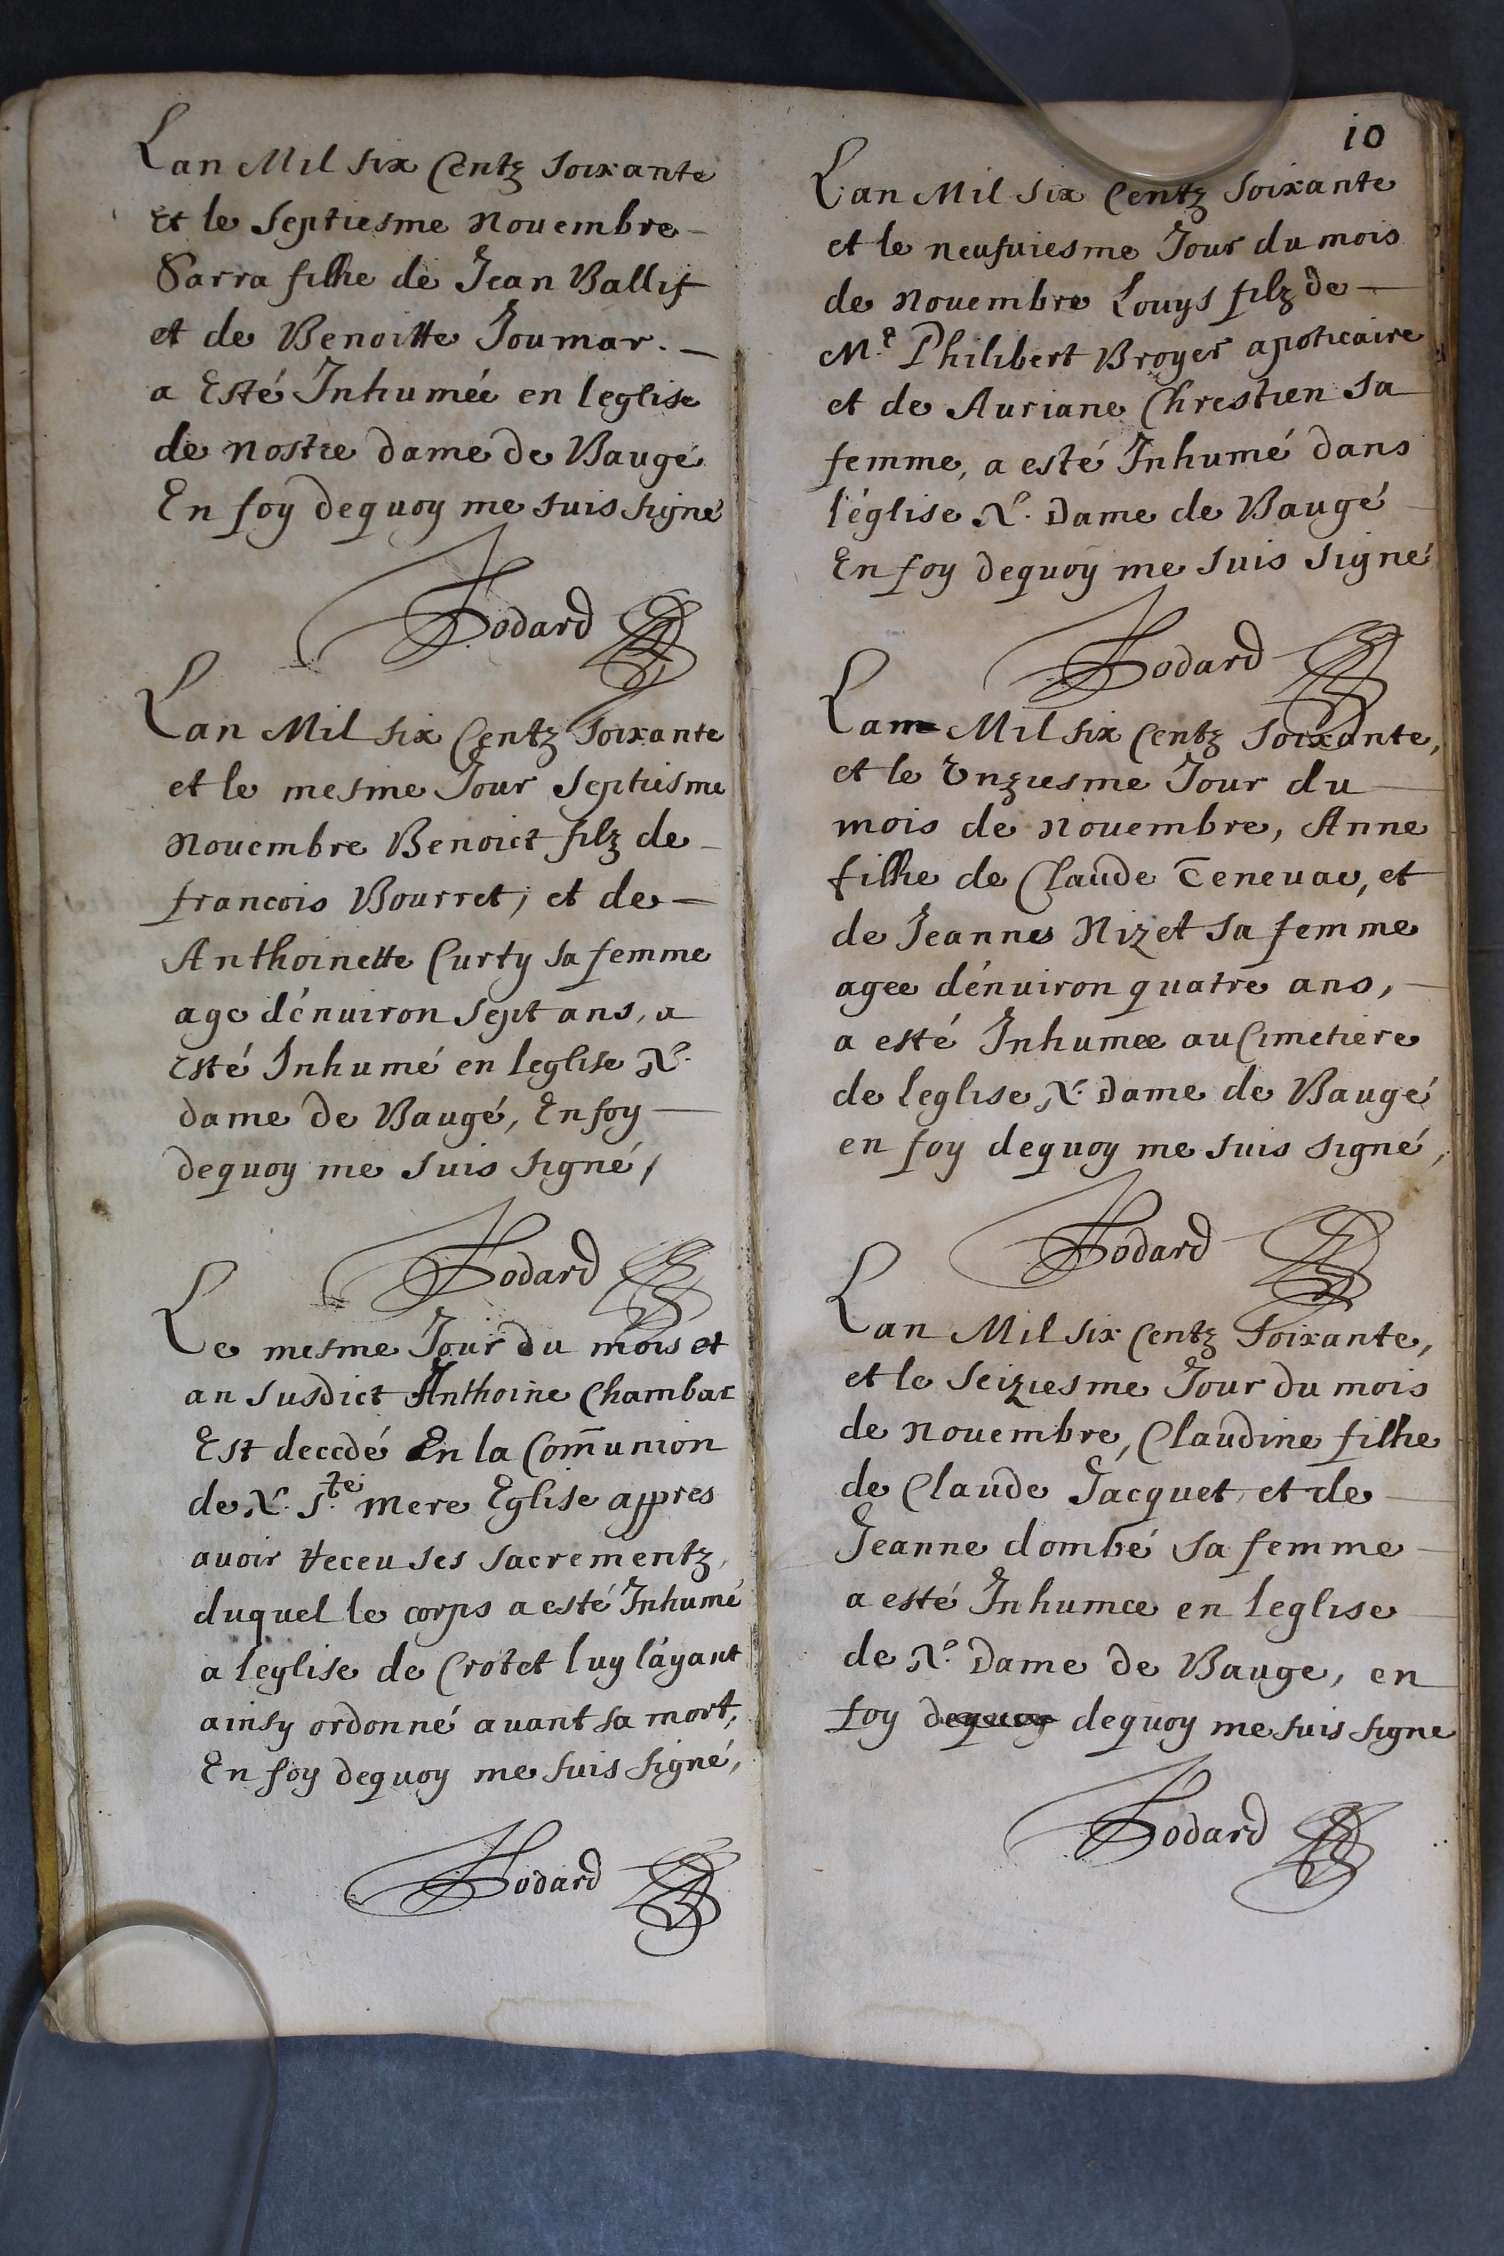 Lan Mil six Centz soixante
Et le Septiesme Nouembre
Sarra filhe de Jean Ballif
et de Benoitte Joumar.
a Esté Inhumée en leglise
de Nostre dame de Baugé
En foy dequoy me suis signé
Godard
Lan Mil six Centz soixante
et le mesme Jour Septiesme
Nouembre Benoict filz de
francois Bourret, et de
Anthoinette Curty sa femme
age d'enuiron Sept ans, a
Esté Inhumé en leglise Nᵉ.
dame de Baugé, En foy
dequoy me suis signé,
Godard
Le mesme Jour du mois et
an susdict Anthoine Chambar
Est decedé En la Com̃union
de Nᵉ. S.te mere Eglise appres
auoir receu ses sacrementz,
duquel le corps a esté Inhumé
a leglise de Crotet luy l'ayant
ainsy ordonné auant sa mort,
En foy dequoy me suis signé,
Godard
10
Lan Mil six Centz soixante
et le neufuiesme Jour du mois
de Nouembre Louys filz de
M.e Philibert Broyer apoticaire
et de Auriane Chrestien sa
femme, a esté Inhumé dans
l'église Nᵉ. Dame de Baugé
En foy dequoy me suis signé
Godard
Lan Mil six Centz soixante,
et le Unziesme Jour du
mois de Nouembre, Anne
filhe de Claude Teneuae, et
de Jeanne Nizet sa femme
agee d'enuiron quatre ans,
a esté Inhumee au Cimetiere
de leglise Nᵉ. Dame de Baugé
en foy dequoy me suis signé,
Godard
Lan Mil six Centz soixante,
et le Seiziesme Jour du mois
de Nouembre, Claudine filhe
de Claude Jacquet et de
Jeanne dombé sa femme
a esté Inhumee en leglise
de Nᵉ. Dame de Bauge, en
foy dequoy dequoy me suis signe
Godard